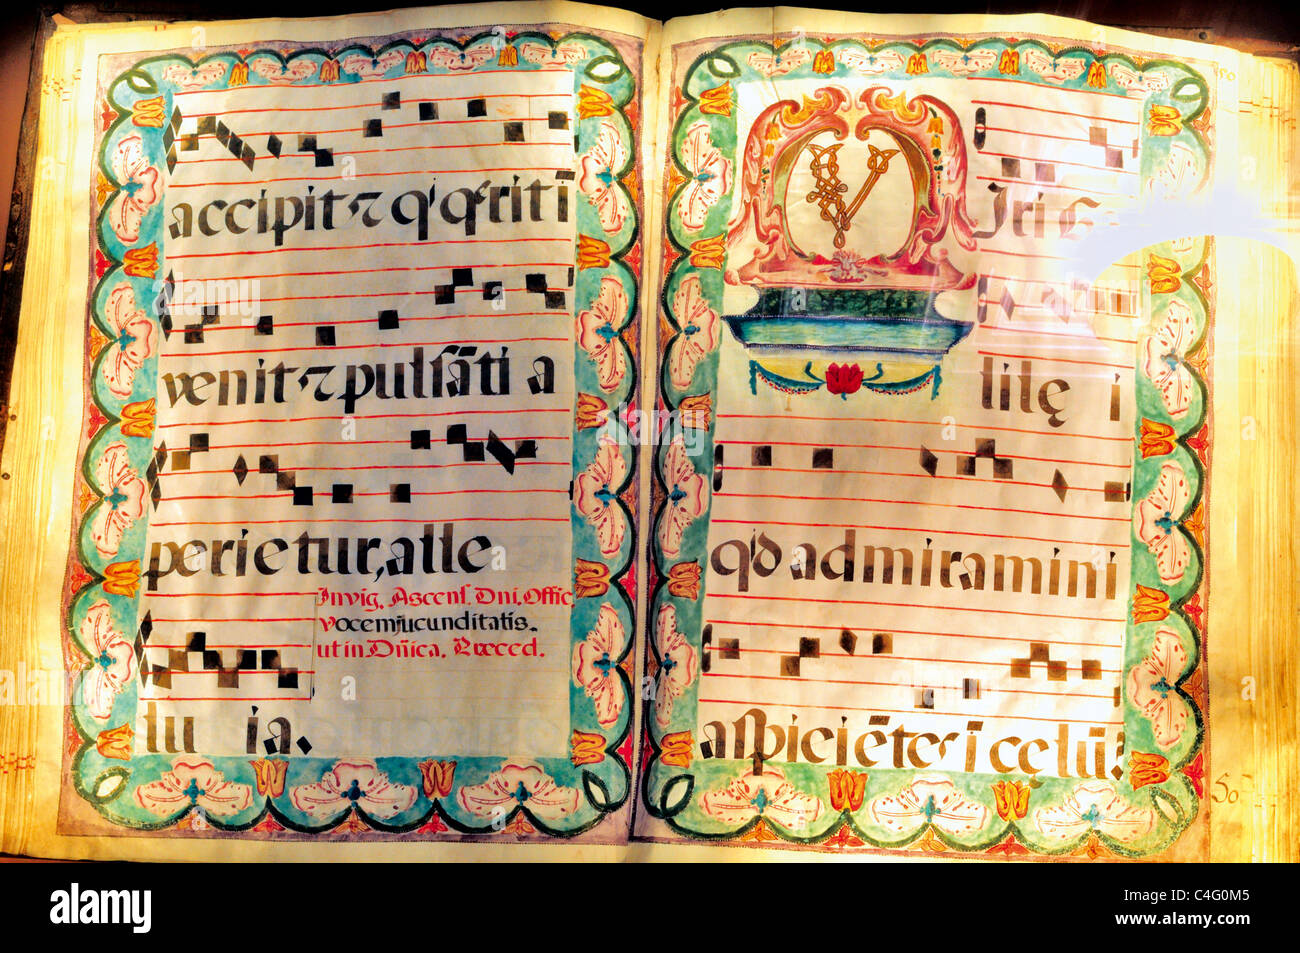 accipit & q' q̃rit ĩ
venit & pulsãti a
perietur, alle
Invig. Ascens. Dni. Offic.
Vocem jucunditatis.
ut in Dñica. Præced.
lu ia.
V
Iri G
lilę i
q'd admiramini
aspiciẽtes ĩ celũ?
50
alamy
Image ID: C4G0M5
www.alamy.com